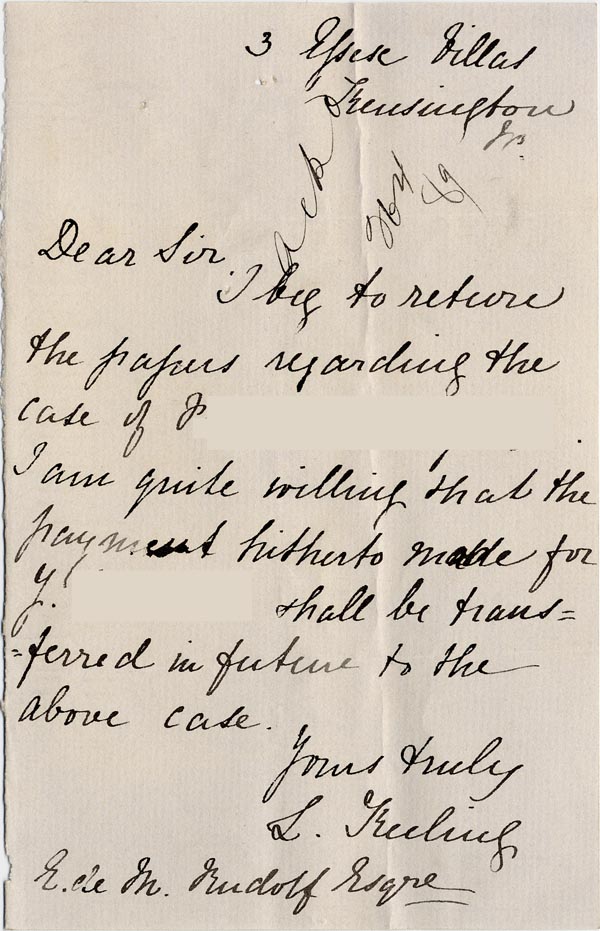 3 Essex Villas
Kensington
ack
26/4
89
Dear Sir,
I beg to return
the papers regarding the
case of J
I am quite willing that the
payment hitherto made for
J.
shall be trans=
=ferred in future to the
above case.
Yours truly
L. Keeling
E. de M. Rudolf Esqre